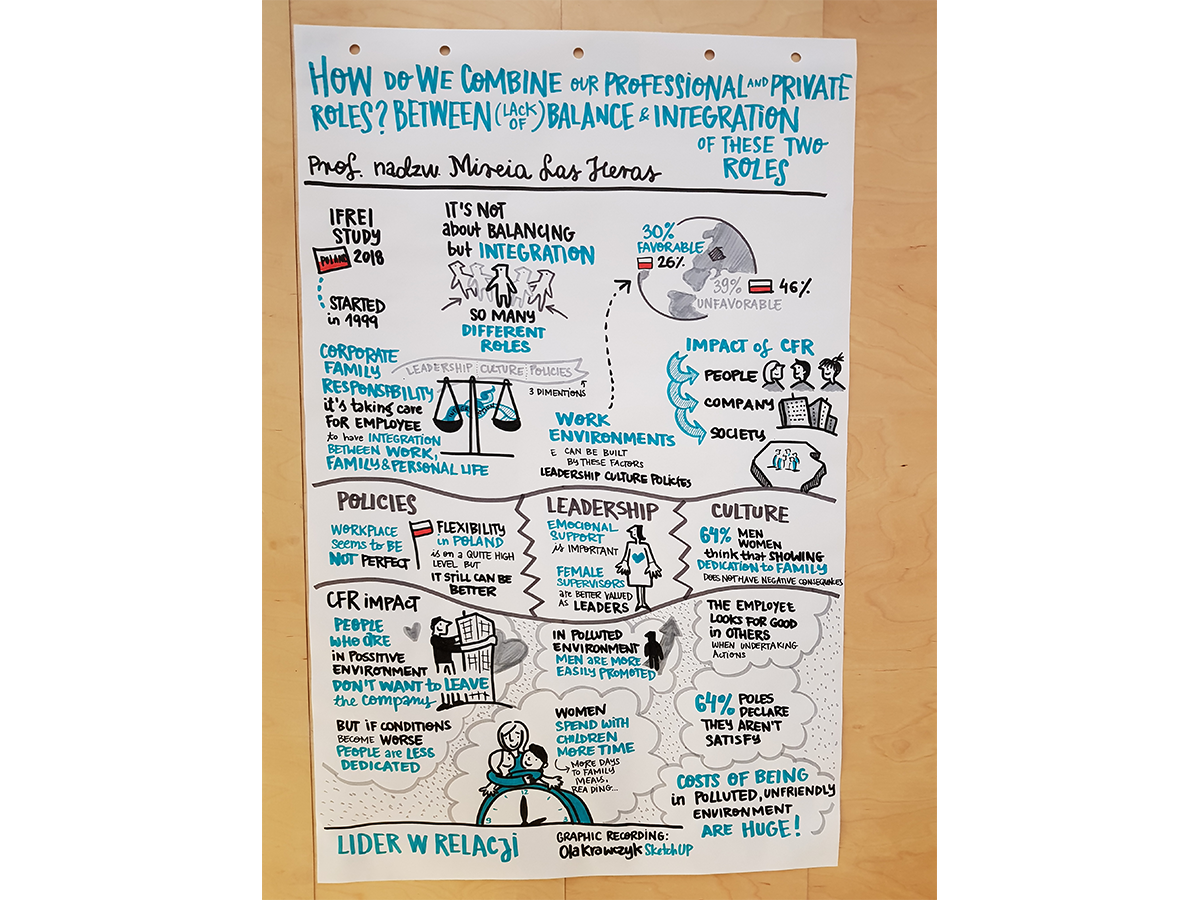 HOW DO WE COMBINE OUR PROFESSIONAL AND PRIVATE
ROLES? BETWEEN (LACK OF) BALANCE & INTEGRATION
OF THESE TWO
ROLES
Prof. nadzw. Mireia Las Heras
IFREI
STUDY
POLAND 2018
STARTED
in 1999
IT'S NOT
about BALANCING
but INTEGRATION
SO MANY
DIFFERENT
ROLES
30%
FAVORABLE
26%
39% 46%
UNFAVORABLE
CORPORATE
FAMILY
RESPONSIBILITY
it's taking care
FOR EMPLOYEE
to have INTEGRATION
BETWEEN WORK,
FAMILY & PERSONAL LIFE
LEADERSHIP CULTURE POLICIES
3 DIMENTIONS
WORK
ENVIRONMENTS
E CAN BE BUILT
BY THESE FACTORS
LEADERSHIP CULTURE POLICIES
IMPACT of CFR
PEOPLE
COMPANY
SOCIETY
POLICIES
WORKPLACE
seems to BE
NOT PERFECT
FLEXIBILITY
in POLAND
is on a QUITE HIGH
LEVEL BUT
IT STILL CAN BE
BETTER
LEADERSHIP
EMOCIONAL
SUPPORT
is IMPORTANT
FEMALE
SUPERVISORS
are BETTER VALUED
AS LEADERS
CULTURE
64% MEN
WOMEN
think that SHOWING
DEDICATION to FAMILY
DOES NOT HAVE NEGATIVE CONSEQUENCES
CFR IMPACT
PEOPLE
WHO ARE
IN POSSITIVE
ENVIRONMENT
DON'T WANT to LEAVE
the company
BUT IF CONDITIONS
BECOME WORSE
PEOPLE are LESS
DEDICATED
IN POLLUTED
ENVIRONMENT
MEN ARE MORE
EASILY PROMOTED
WOMEN
SPEND WITH
CHILDREN
MORE TIME
MORE DAYS
TO FAMILY
MEALS,
READING...
12
9
THE EMPLOYEE
LOOKS FOR GOOD
in OTHERS
WHEN UNDERTAKING
ACTIONS
64% POLES
DECLARE
THEY AREN'T
SATISFY
COSTS OF BEING
in POLLUTED, UNFRIENDLY
ENVIRONMENT
ARE HUGE!
LIDER W RELACJI
GRAPHIC RECORDING:
Ola Krawczyk SketchUP